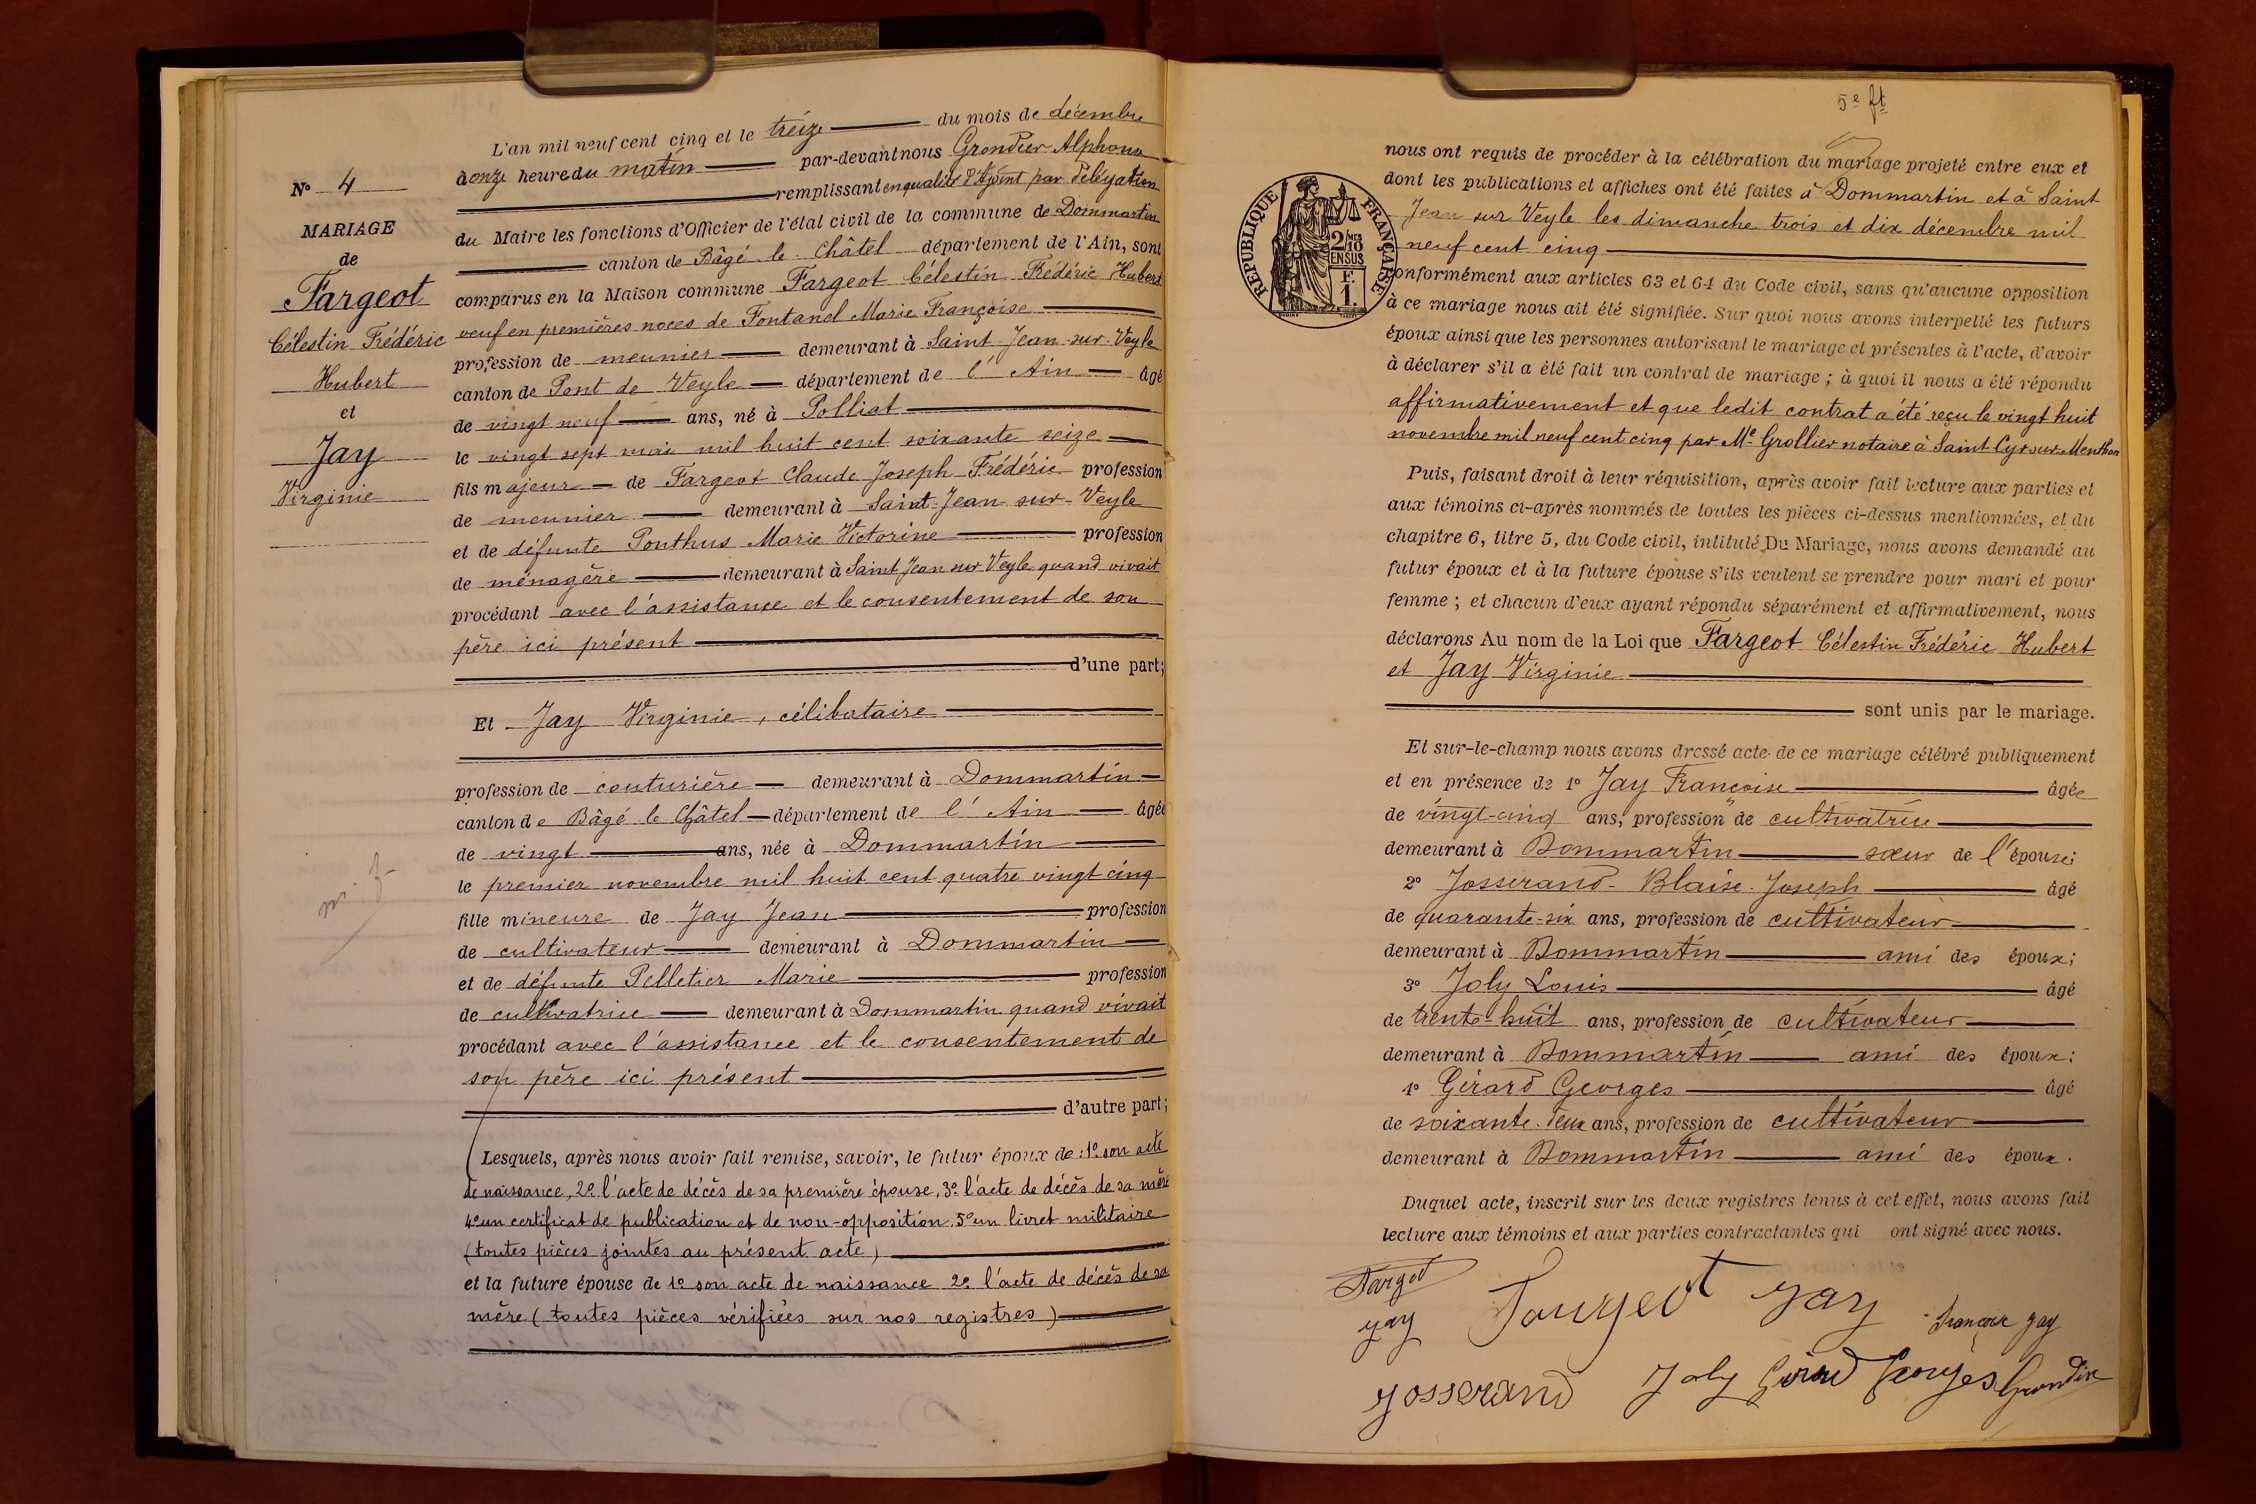 N° 4
MARIAGE
de
Fargeot
Célestin Frédéric
Hubert
et
Jay
Virginie
L'an mil neuf cent cinq et le treize du mois de décembre
à onze heure du matin par-devant nous Grondier Alphonse
remplissant en qualité d'Adjoint par délégation
du Maire les fonctions d'Officier de l'état civil de la commune de Dommartin
canton de Bâgé le Châtel département de l'Ain, sont
comparus en la Maison commune Fargeot Célestin Frédéric Hubert
veuf en premières noces de Fontanel Marie Françoise
profession de meunier demeurant à Saint Jean-sur-Veyle
canton de Pont de Veyle département de l'Ain âgé
de vingt neuf ans, né à Polliat
le vingt sept mai mil huit cent soixante seize
fils majeur de Fargeot Claude Joseph Frédéric profession
de meunier demeurant à Saint-Jean-sur-Veyle
et de défunte Ponthus Marie Victorine profession
de ménagère demeurant à Saint Jean sur Veyle quand vivait
procédant avec l'assistance et le consentement de son
père ici présent
d'une part;
Et Jay Virginie, célibataire
profession de couturière demeurant à Dommartin
canton de Bâgé le Châtel département de l'Ain âgée
de vingt ans, née à Dommartin
le premier novembre mil huit cent quatre vingt cinq
fille mineure de Jay Jean profession
de cultivateur demeurant à Dommartin
et de défunte Pelletier Marie profession
de cultivatrice demeurant à Dommartin quand vivait
procédant avec l'assistance et le consentement de
son père ici présent
d'autre part;
Lesquels, après nous avoir fait remise, savoir, le futur époux de : 1° son acte
de naissance, 2° l'acte de décès de sa première épouse, 3° l'acte de décès de sa mère
4° un certificat de publication et de non-opposition, 5° un livret militaire
(toutes pièces jointes au présent acte)
et la future épouse de 1° son acte de naissance 2° l'acte de décès de sa
mère (toutes pièces vérifiées sur nos registres)
5e ft
nous ont requis de procéder à la célébration du mariage projeté entre eux et
dont les publications et affiches ont été faites à Dommartin et à Saint
Jean sur Veyle les dimanche trois et dix décembre mil
neuf cent cinq
RÉPUBLIQUE FRANÇAISE
2/10
EN SUS
F.
1.
onformément aux articles 63 et 64 du Code civil, sans qu'aucune opposition
à ce mariage nous ait été signifiée. Sur quoi nous avons interpellé les futurs
époux ainsi que les personnes autorisant le mariage et présentes à l'acte, d'avoir
à déclarer s'il a été fait un contrat de mariage ; à quoi il nous a été répondu
affirmativement et que ledit contrat a été reçu le vingt huit
novembre mil neuf cent cinq par Me Grollier notaire à Saint Cyr sur Menthon
Puis, faisant droit à leur réquisition, après avoir fait lecture aux parties et
aux témoins ci-après nommés de toutes les pièces ci-dessus mentionnées, et du
chapitre 6, titre 5, du Code civil, intitulé Du Mariage, nous avons demandé au
futur époux et à la future épouse s'ils veulent se prendre pour mari et pour
femme ; et chacun d'eux ayant répondu séparément et affirmativement, nous
déclarons Au nom de la Loi que Fargeot Célestin Frédéric Hubert
et Jay Virginie
sont unis par le mariage.
Et sur-le-champ nous avons dressé acte de ce mariage célébré publiquement
et en présence de 1° Jay Françoise âgée
de vingt-cinq ans, profession de cultivatrice
demeurant à Dommartin sœur de l'épouse;
2° Josserand Blaise Joseph âgé
de quarante-six ans, profession de cultivateur
demeurant à Dommartin ami des époux;
3° Joly Louis âgé
de trente-huit ans, profession de cultivateur
demeurant à Dommartin ami des époux;
4° Gérard Georges âgé
de soixante-deux ans, profession de cultivateur
demeurant à Dommartin ami des époux.
Duquel acte, inscrit sur les deux registres tenus à cet effet, nous avons fait
lecture aux témoins et aux parties contractantes qui ont signé avec nous.
Fargeot Fargeot Jay
Jay Françoise Jay
Josserand Joly Gérard Georges